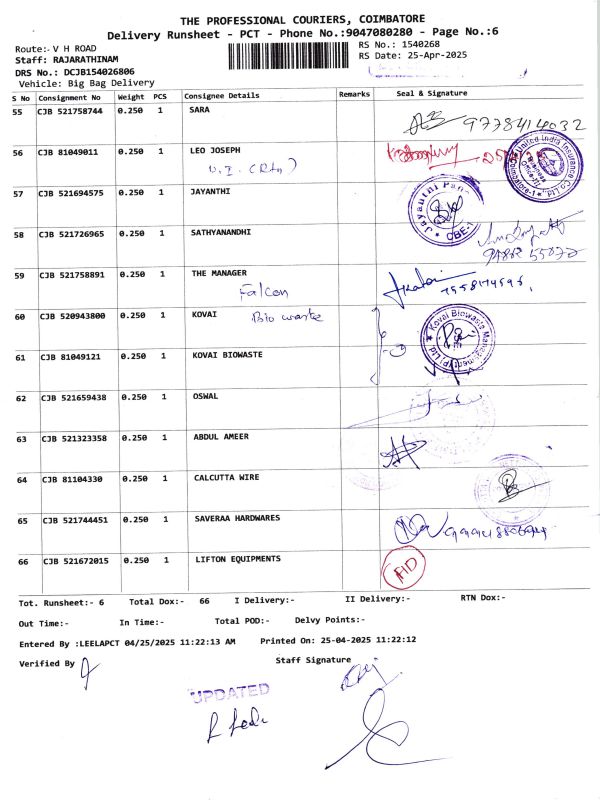 THE PROFESSIONAL COURIERS, COIMBATORE
Delivery Runsheet - PCT - Phone No.:9047080280 - Page No.:6
Route:- V H ROAD
RS No.: 1540268
Staff: RAJARATHINAM
RS Date: 25-Apr-2025
DRS No.: DCJB154026806
Vehicle: Big Bag Delivery
S No Consignment No Weight PCS Consignee Details Remarks Seal & Signature
55 CJB 521758744 0.250 1 SARA
9778414032
56 CJB 81049011 0.250 1 LEO JOSEPH
United India Insurance Co Ltd
57 CJB 521694575 0.250 1 JAYANTHI
Jayanthi
CBE-1
58 CJB 521726965 0.250 1 SATHYANANDHI
59 CJB 521758891 0.250 1 THE MANAGER
Falcon
60 CJB 520943800 0.250 1 KOVAI
Bio waste
Kovai Biowaste Management (P) Ltd
61 CJB 81049121 0.250 1 KOVAI BIOWASTE
62 CJB 521659438 0.250 1 OSWAL
63 CJB 521323358 0.250 1 ABDUL AMEER
64 CJB 81104330 0.250 1 CALCUTTA WIRE
65 CJB 521744451 0.250 1 SAVERAA HARDWARES
66 CJB 521672015 0.250 1 LIFTON EQUIPMENTS
Tot. Runsheet:- 6 Total Dox:- 66 I Delivery:- II Delivery:- RTN Dox:-
Out Time:- In Time:- Total POD:- Delvy Points:-
Entered By :LEELAPCT 04/25/2025 11:22:13 AM Printed On: 25-04-2025 11:22:12
Verified By
Staff Signature
UPDATED